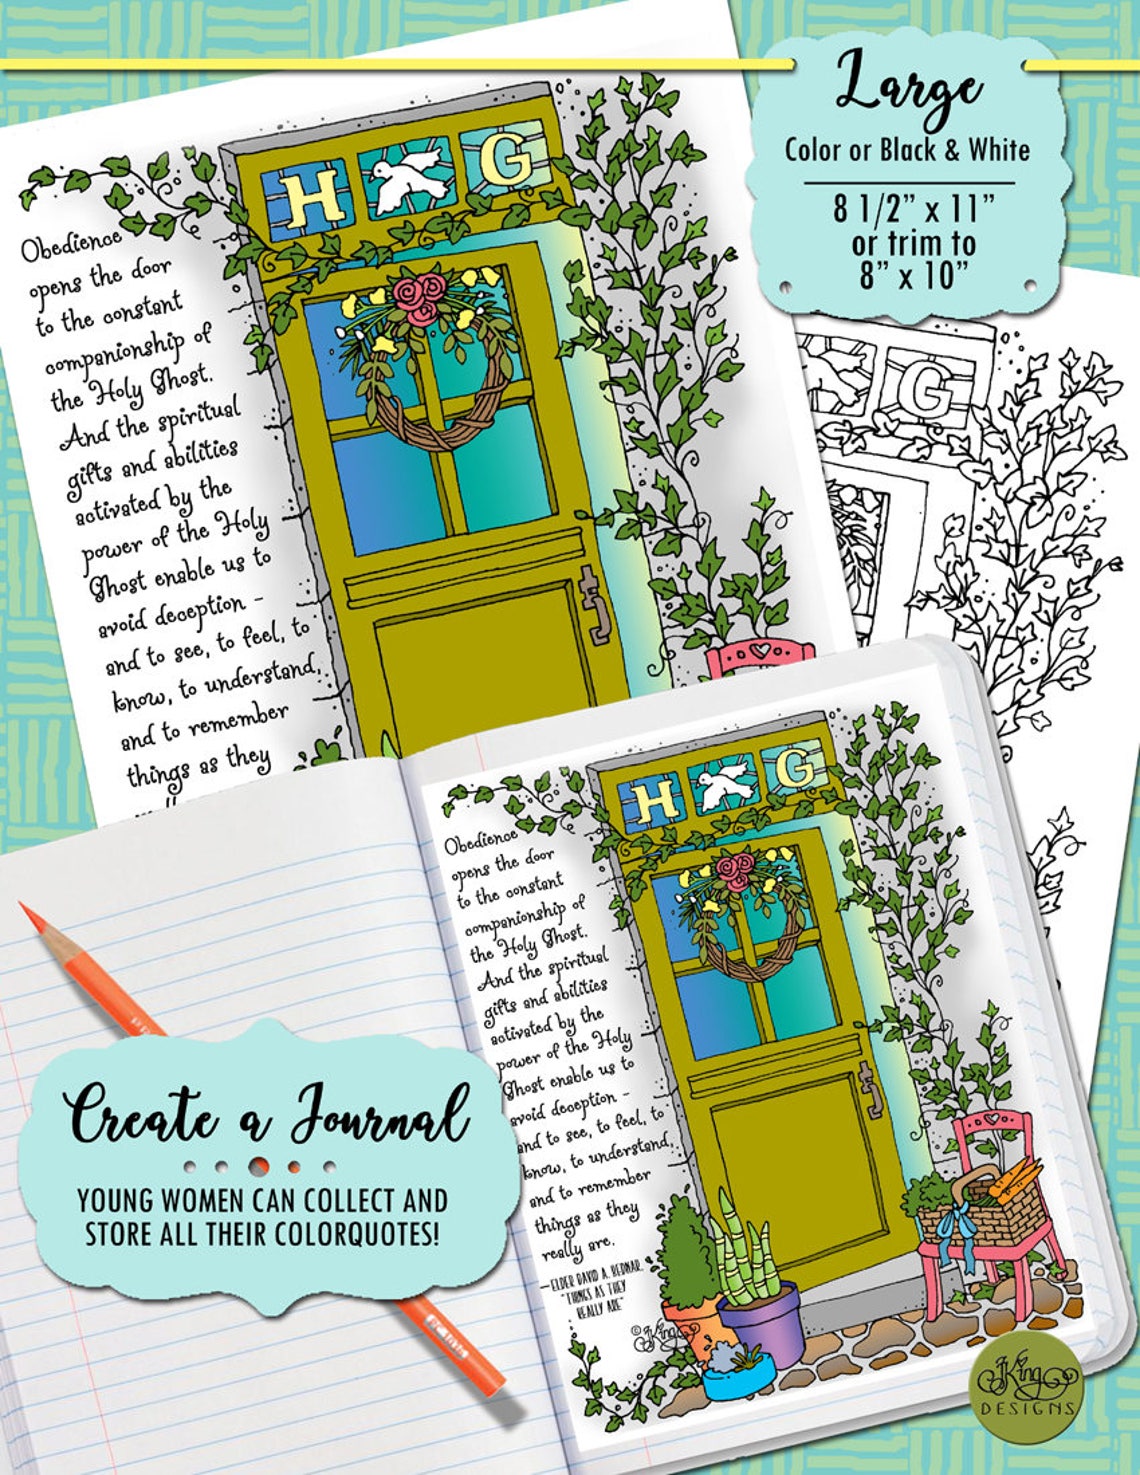 Large
Color or Black & White
8 1/2” x 11”
or trim to
8” x 10”
H G
Obedience
opens the door
to the constant
companionship of
the Holy Ghost.
And the spiritual
gifts and abilities
activated by the
power of the Holy
Ghost enable us to
avoid deception –
and to see, to feel, to
know, to understand,
and to remember
things as they
G
H G
Obedience
opens the door
to the constant
companionship of
the Holy Ghost.
And the spiritual
gifts and abilities
activated by the
power of the Holy
Ghost enable us to
avoid deception –
and to see, to feel, to
know, to understand,
and to remember
things as they
really are.
—ELDER DAVID A. BEDNAR,
"THINGS AS THEY
REALLY ARE"
© JKing
Create a Journal
YOUNG WOMEN CAN COLLECT AND
STORE ALL THEIR COLORQUOTES!
JKing
DESIGNS